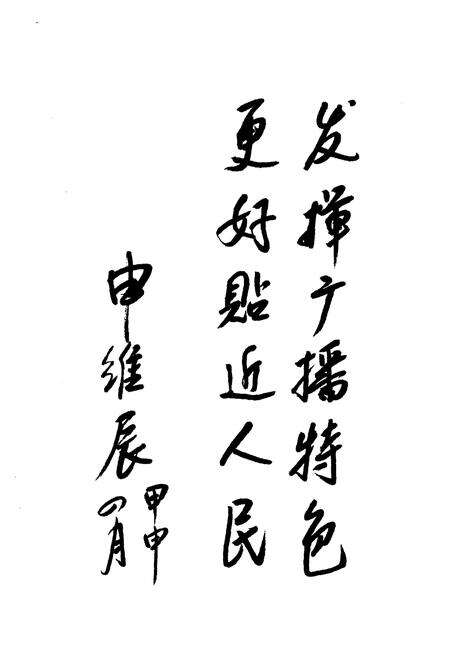 发揮广播特色
更好貼近人民
申维辰
甲申
四月